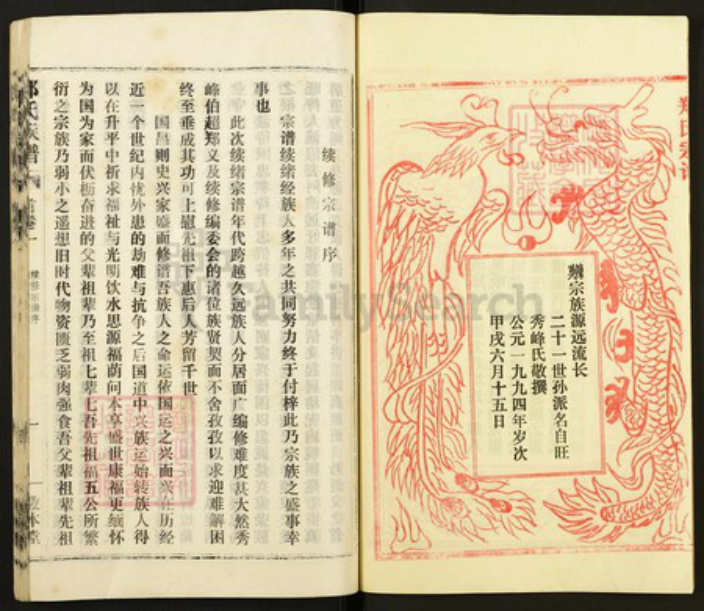 郑氏宗谱
赠宗族源远流长
二十一世孙派名自旺
秀峰氏敬撰
公元一九九四年岁次
甲戌六月十五日
续修宗谱序
宗谱续绪经族人多年之共同努力终于付梓此乃宗族之盛事幸
事也
此次续绪宗谱年代跨越久远族人分居面广编修难度甚大然秀
峰伯超郑义及续修编委会的诸位族贤契而不舍孜孜以求迎难解困
终至垂成其功可上慰先祖下惠后人芳留千世
国昌则史兴家盛而修谱吾族人之命运依国运之兴而兴在历经
近一个世纪内忧外患的劫难与抗争之后国道中兴族运始转族人得
以在升平中祈求福祉与光明饮水思源福荫问本享盛世康福更缅怀
为国为家而伏枥奋进的父辈祖辈乃至祖七辈七吾先祖福五公所繁
衍之宗族乃弱小之遥想旧时代物资匮乏弱肉强食吾父辈祖辈先祖
氏族谱
首卷一
续修宗谱序
一
敦本堂
FamilySearch